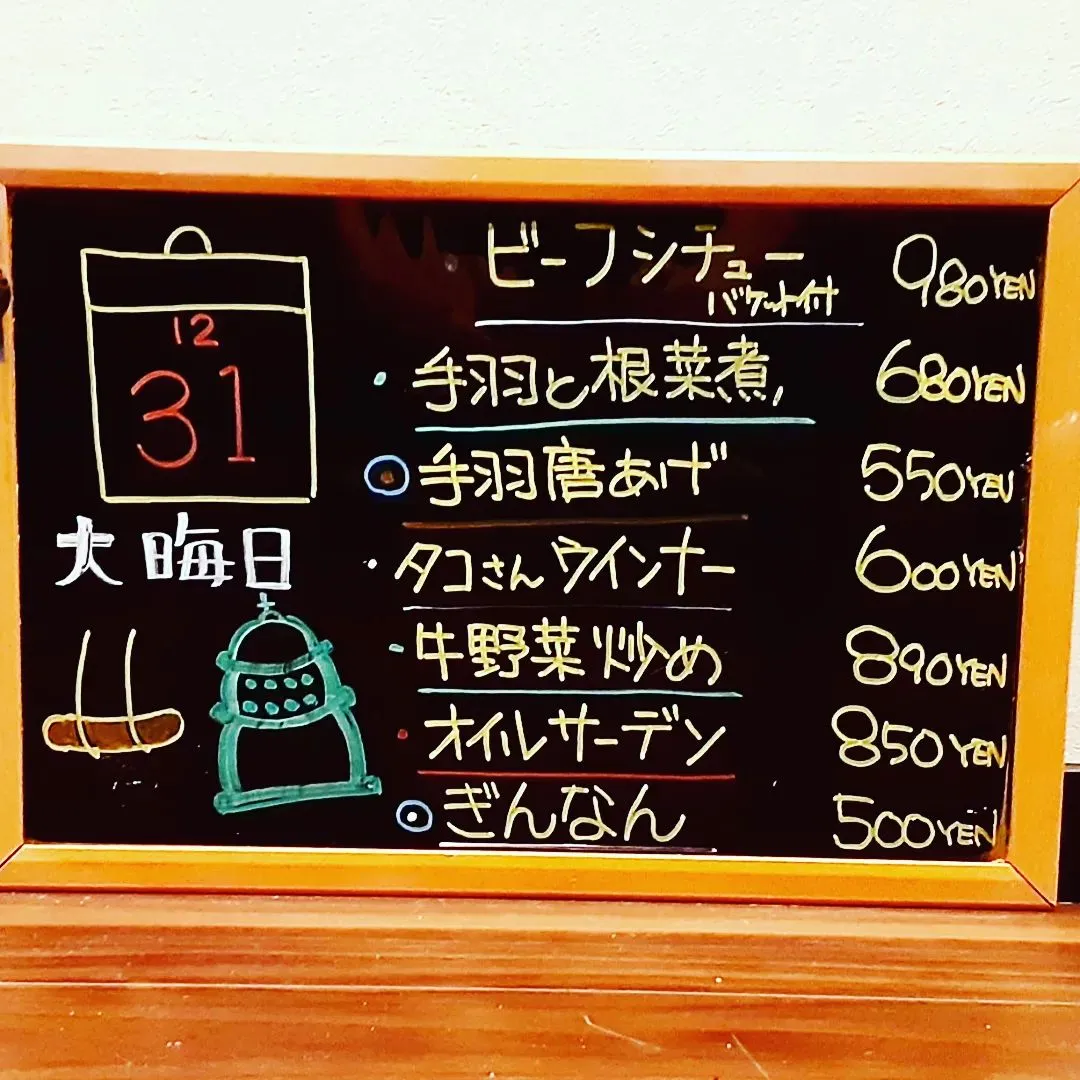 12
31
大晦日
ビーフシチュー 980YEN
バケット付
・手羽と根菜煮 680YEN
手羽唐あげ 550YEN
・タコさんウインナー 600YEN
・牛野菜炒め 890YEN
・オイルサーデン 850YEN
ぎんなん 500YEN